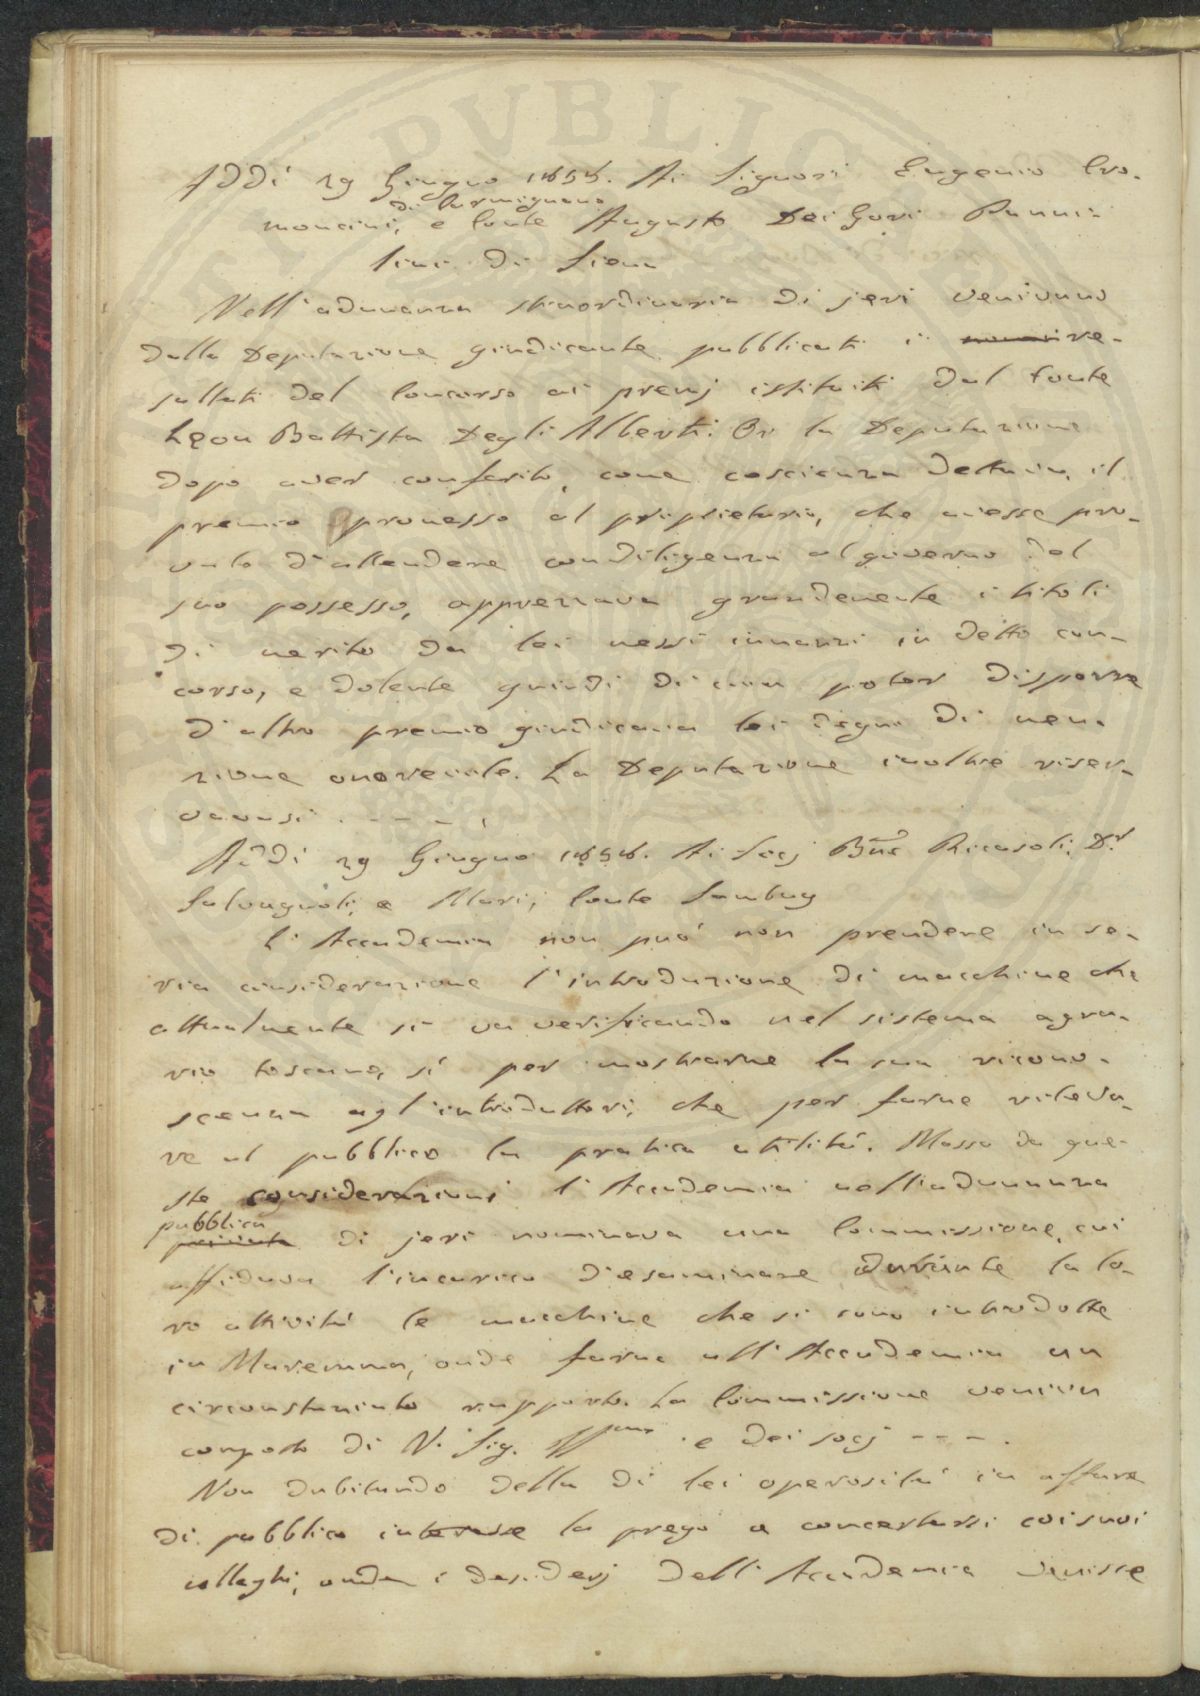 Addì 29 Giugno 1858. Ai Signori Eugenio Cro-
di Carmignano
moncini, e Conte Augusto Dei Gori Panni-
lini di Siena
Nell'adunanza straordinaria di jeri venivano
dalla Deputazione giudicante pubblicati i re-
sultati del Concorso ai premj istituiti dal Conte
Leon Battista Degli Alberti. Or la Deputazione
dopo aver conferito, come coscienza dettava, il
premio promesso al proprietario, che avesse pro-
vato d'attendere con diligenza al governo del
suo possesso, apprezzava grandemente i titoli
di merito da lei messi innanzi in detto con-
corso, e dolente quindi di non poter disporre
d'altro premio giudicava lei degno di men-
zione onorevole. La Deputazione inoltre riser-
vavasi - - - -
Addì 29 Giugno 1858. Ai Socj Bne Ricasoli, Dr
Salvagnoli, e Mari, Conte Sambuy
L'Accademia non può non prendere in se-
ria considerazione l'introduzione di macchine che
attualmente si va verificando nel sistema agra-
rio toscano, sì per mostrarne la sua ricono-
scenza agl'introduttori, che per farne rileva-
re al pubblico la pratica utilità. Mossa da que-
ste considerazioni l'Accademia nell'adunanza
pubblica
privata di jeri nominava una Commissione, cui
affidava l'incarico d'esaminare durante la lo-
ro attività le macchine che si sono introdotte
in Maremma, onde farne all'Accademia un
circonstanziato rapporto. La Commissione veniva
composto di V. Sig. e dei socj - - - .
Non dubitando della di lei operosità in affare
di pubblico interesse la prego a concertarsi coi suoi
colleghi, onde i desiderj dell'Accademia venisse